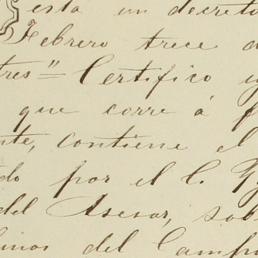 esta un decreto
Febrero trece d
tres" Certifico y
que corre á f
te, contiene el
do por el C. 
del Asesor, sob
inos del Camp